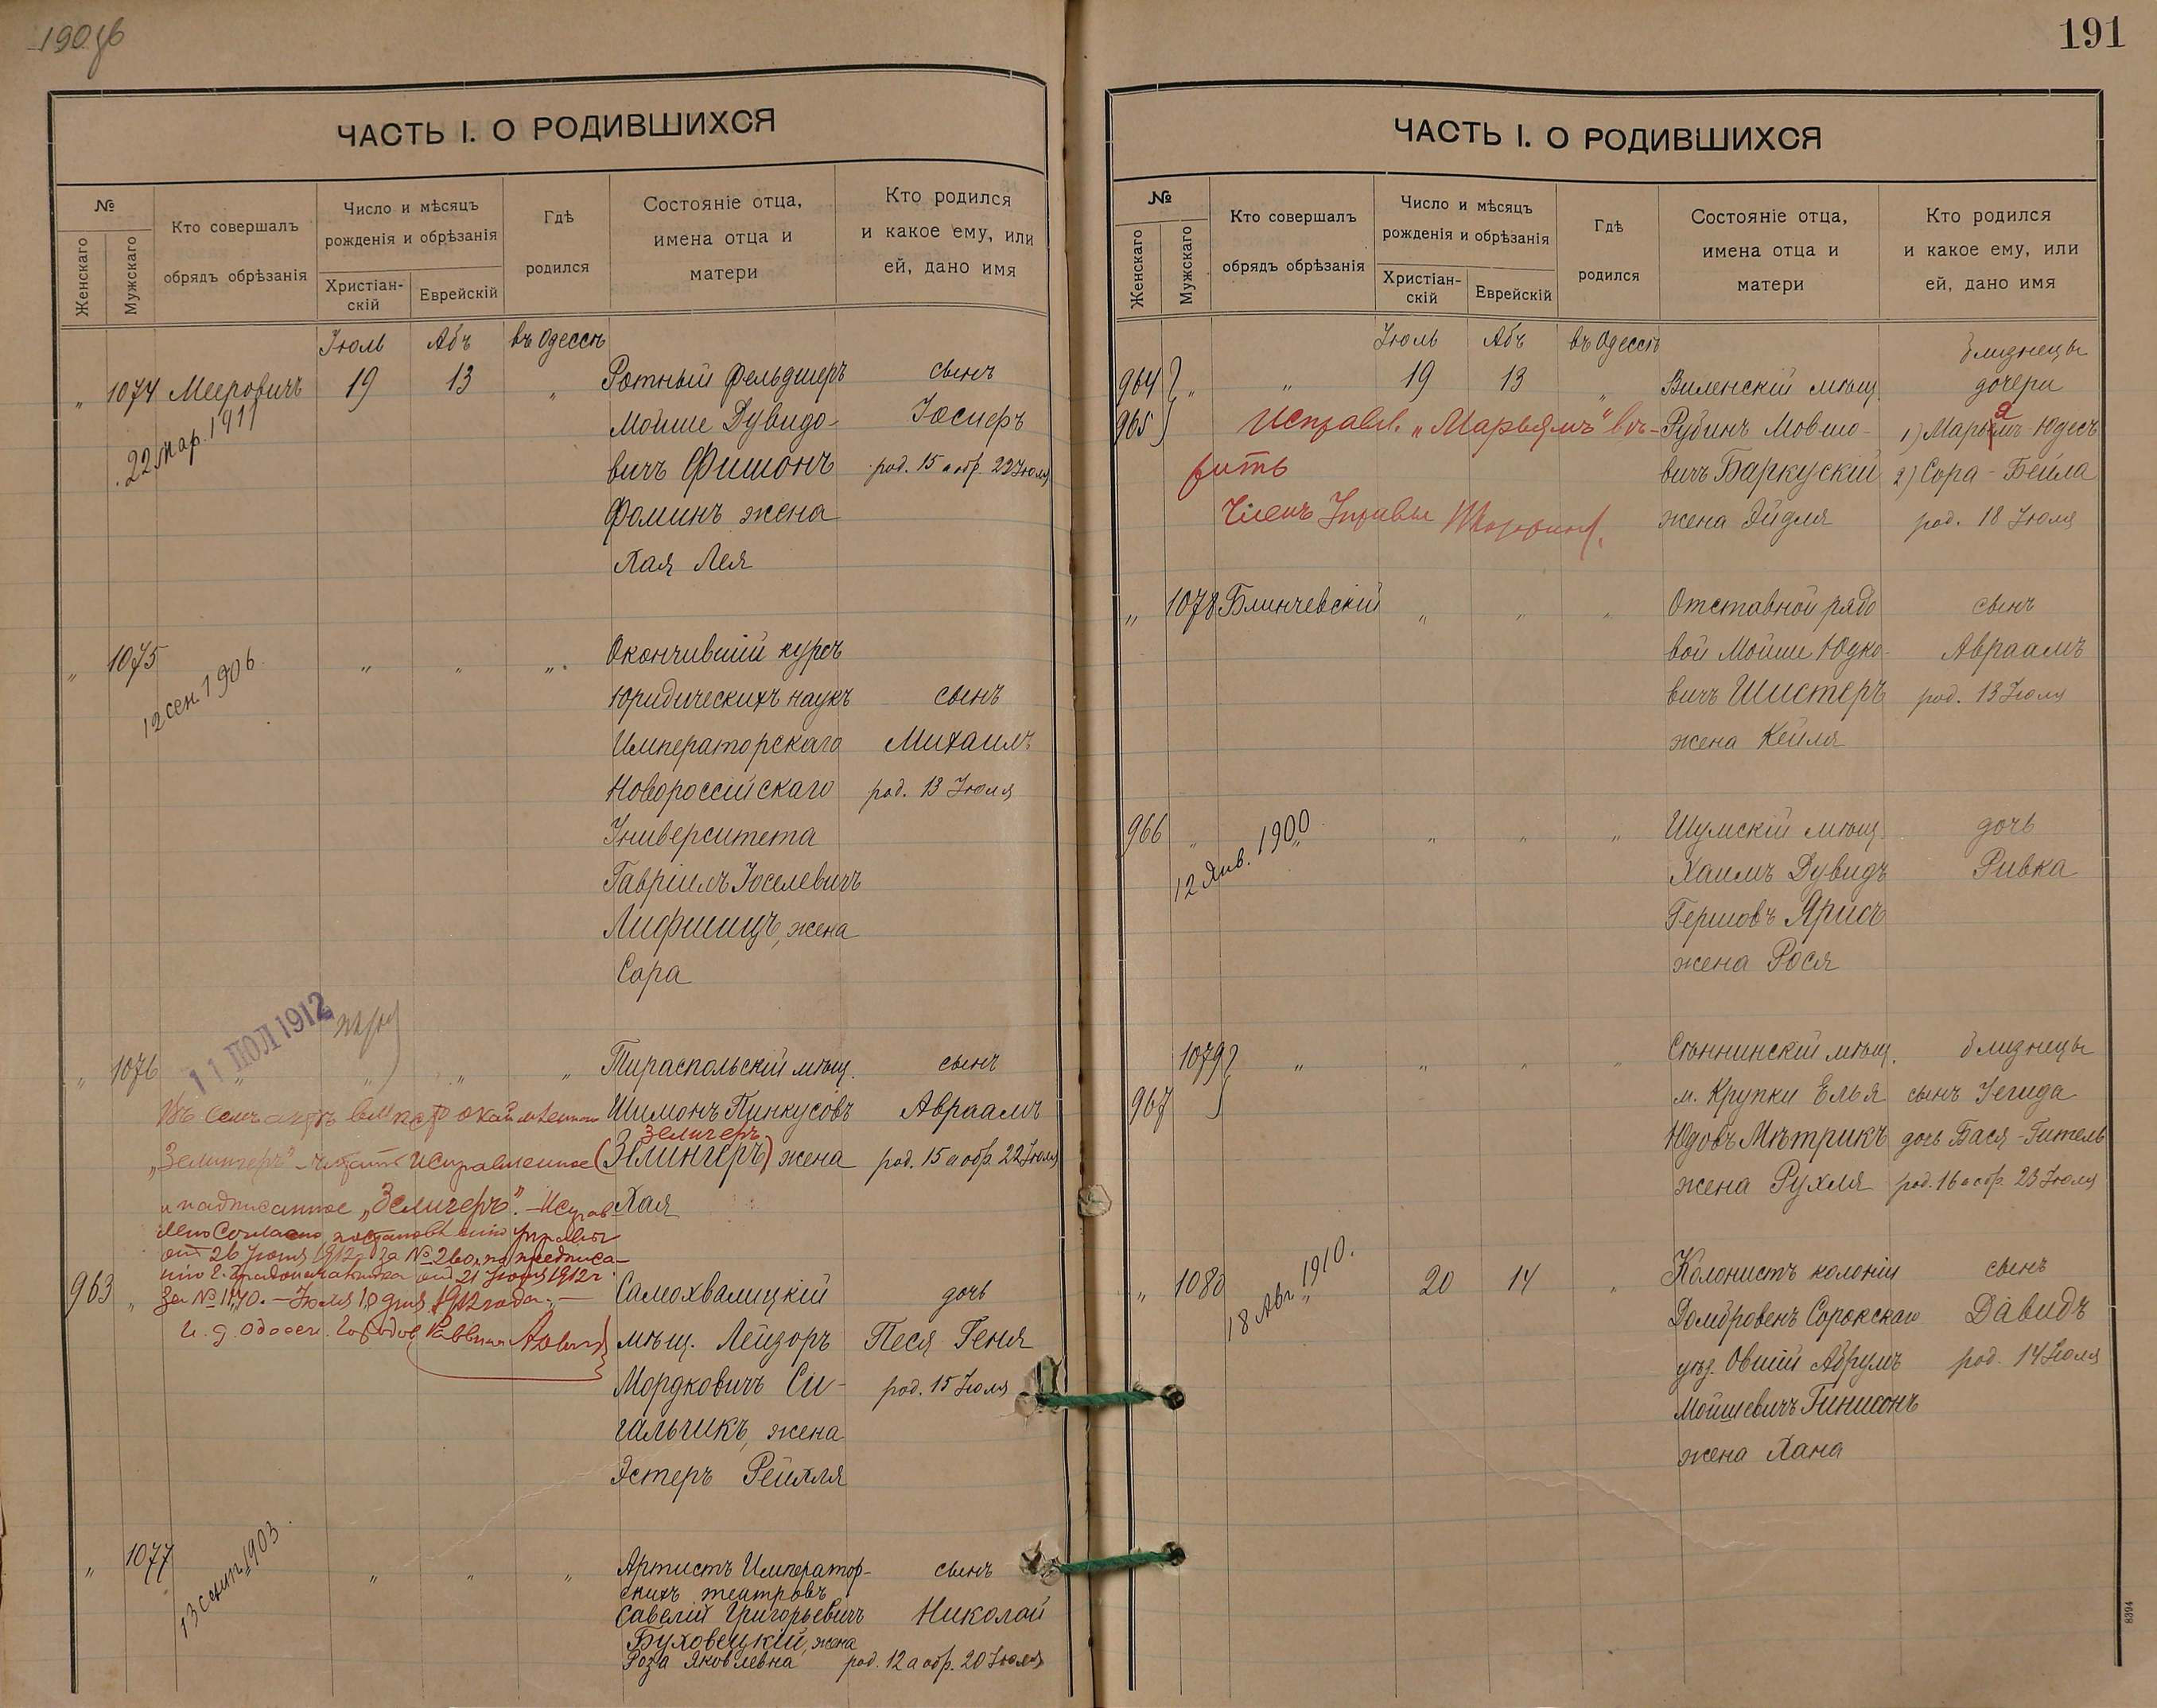 190об
ЧАСТЬ I. О РОДИВШИХСЯ
№
Женскаго
Мужскаго
Кто совершалъ
обрядъ обрѣзанія
Число и мѣсяцъ
рожденія и обрѣзанія
Христіан-
скій
Еврейскій
Гдѣ
родился
Состояніе отца,
имена отца и
матери
Кто родился
и какое ему, или
ей, дано имя
Іюль Абъ въ Одессѣ
" 1074 Мееровичъ 19 13 " Ротный фельдшеръ сынъ
22 мар. 1911
Мойше Дувидо- Юсперъ
вичъ Фишонъ род. 15 а обр. 22 Іюля
Фоминъ жена
Хая Лея
" 1075 " " " Окончившій курсъ
12 сен. 1906
Юридическихъ наукъ сынъ
Императорскаго Михаилъ
Новороссійскаго род. 13 Іюля
Университета
Гавріилъ Іоселевичъ
Лифшицъ, жена
Сара
11 ІЮЛ 1912
" 1076 " " " " Тираспольскій мѣщ. сынъ
Шимонъ Пинкусовъ Авраамъ
Зеличеръ
(Зелингеръ) жена род. 15 а обр. 22 Іюля
Хая
Въ семъ актѣ вмѣсто окаймленнаго
"Зелингеръ" – читать исправленное
и надписанное "Зеличеръ". – Исправ-
лено согласно постановленію Управы
отъ 26 Іюня 1912 г. за № 260, по предписа-
нію Г. Градоначальника отъ 21 Іюня 1912 г.
за № 1170. – Іюля 10 дня 1912 года. –
И. д. Одесск. Городов. Раввина
963 " Самохвалицкій дочь
мѣщ. Лейзоръ Песя Геня
Мордковичъ Си- род. 15 Іюля
гальчикъ, жена
Эстеръ Рейзля
" 1077 " " " Артистъ Император- сынъ
13 сент. 1903
скихъ театровъ
Савелій Григорьевичъ Николай
Буховецкій, жена
Роза Яковлевна род. 12 а обр. 20 Іюля
191
ЧАСТЬ I. О РОДИВШИХСЯ
№
Женскаго
Мужскаго
Кто совершалъ
обрядъ обрѣзанія
Число и мѣсяцъ
рожденія и обрѣзанія
Христіан-
скій
Еврейскій
Гдѣ
родился
Состояніе отца,
имена отца и
матери
Кто родился
и какое ему, или
ей, дано имя
Іюль Абъ въ Одессѣ близнецы
964 " " 19 13 " Виленскій мѣщ. дочери
965 Исправл. "Марьямъ" вѣ- Рубинъ Мовшо- 1) Марьямъ Юдесъ
рить вичъ Баркускій 2) Сора - Бейла
Членъ Управы жена Эйдля род. 18 Іюля
" 1078 Блинчевскій " " " Отставной рядо сынъ
вой Мойше Юдко- Авраамъ
вичъ Шистеръ род. 13 Іюля
жена Кейля
966 " " " " " Шумскій мѣщ. дочь
12 Янв. 1900
Хаимъ Дувидъ Ривка
Гершовъ Ярисъ
жена Рося
1079 " " " " Сѣннинскій мѣщ. близнецы
967 м. Крупки Елья сынъ Іегида
Юдовъ Мѣтрикъ дочь Бася - Гитель
жена Рухля род. 16 а обр. 23 Іюля
" 1080 " 20 14 " Колонистъ колоніи сынъ
18 Авг. 1910.
Домбровенъ Сорокскаго Давидъ
уѣз. Овшій Абрумъ род. 14 Іюля
Мойшевичъ Гинисонъ
жена Хана
8394